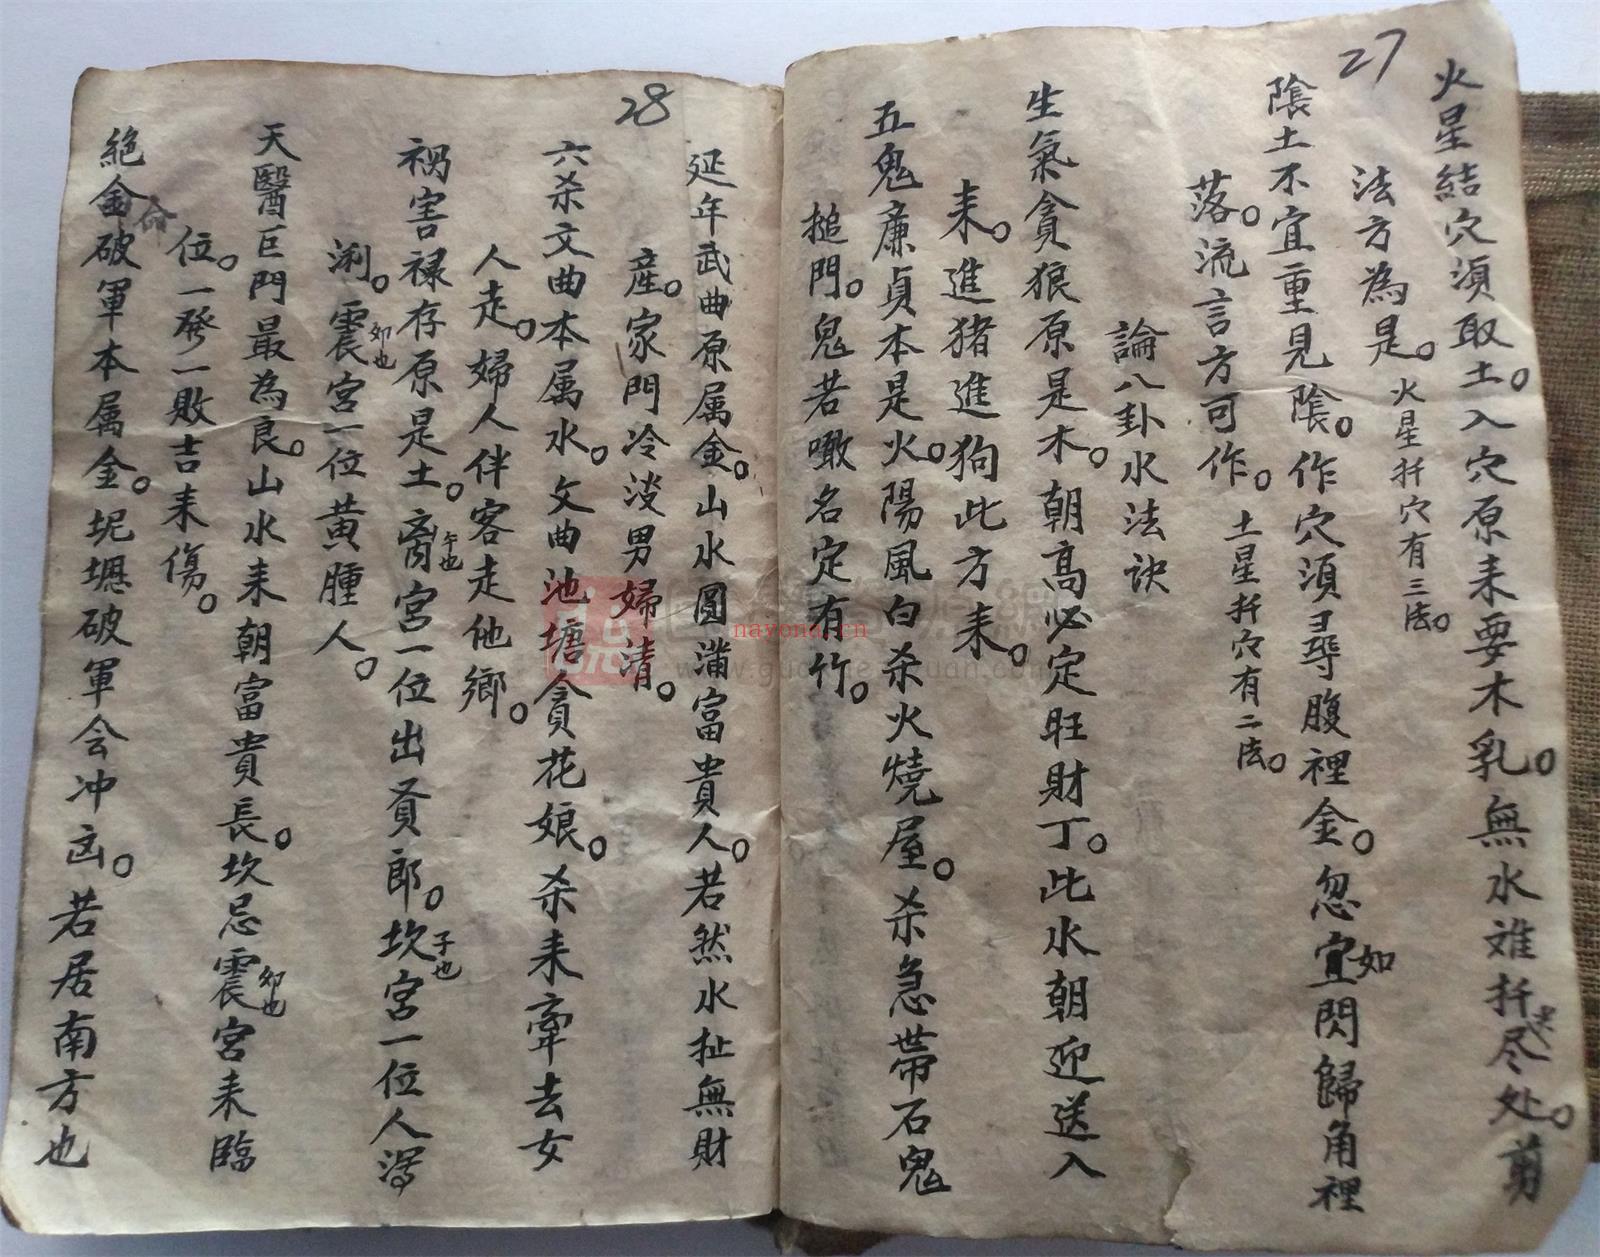 27
火星結穴湏取土。入穴原耒要木乳。無水难扦尽处。剪
法方為是。火星扦穴有三法。
陰土不宜重見陰。作穴湏尋腹裡金。忽宜如閃歸角裡
落。流言方可作。土星扦穴有二法。
論八卦水法訣
生氣貪狼原是木。朝高必定旺財丁。此水朝迎送入
耒。進猪進狗此方耒。
五鬼廉貞本是火。陽風白杀火燒屋。杀急带石鬼
搥門。鬼若瞰名定有竹。
28
延年武曲原属金。山水圓滿富貴人。若然水扯無財
産。家門冷淡男婦清。
六杀文曲本属水。文曲池塘貪花娘。杀耒牽去女
人走。婦人伴客走他鄉。
祸害禄存原是土。离午也宮一位出賚郎。坎子也宮一位人瀉
痢。震卯也宮一位黄腫人。
天醫巨門最為良。山水耒朝富貴長。坎忌震卯也宮耒臨
位。一發一敗吉耒傷。
絕命金破軍本属金。坭壢破軍会冲凶。若居南方也
nayona.cn